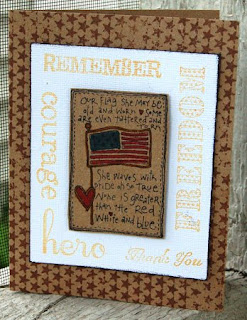 REMEMBER
FREEDOM
courage
OUR FLAG SHE MAY BE
old AND WORN ♥ SOME
ARE EVEN TATTERED AND
TORN
She WAVES WITH
PRIDE oh so TRUE
NONE IS GREATER
than the RED
White and blue!
hero
Thank You